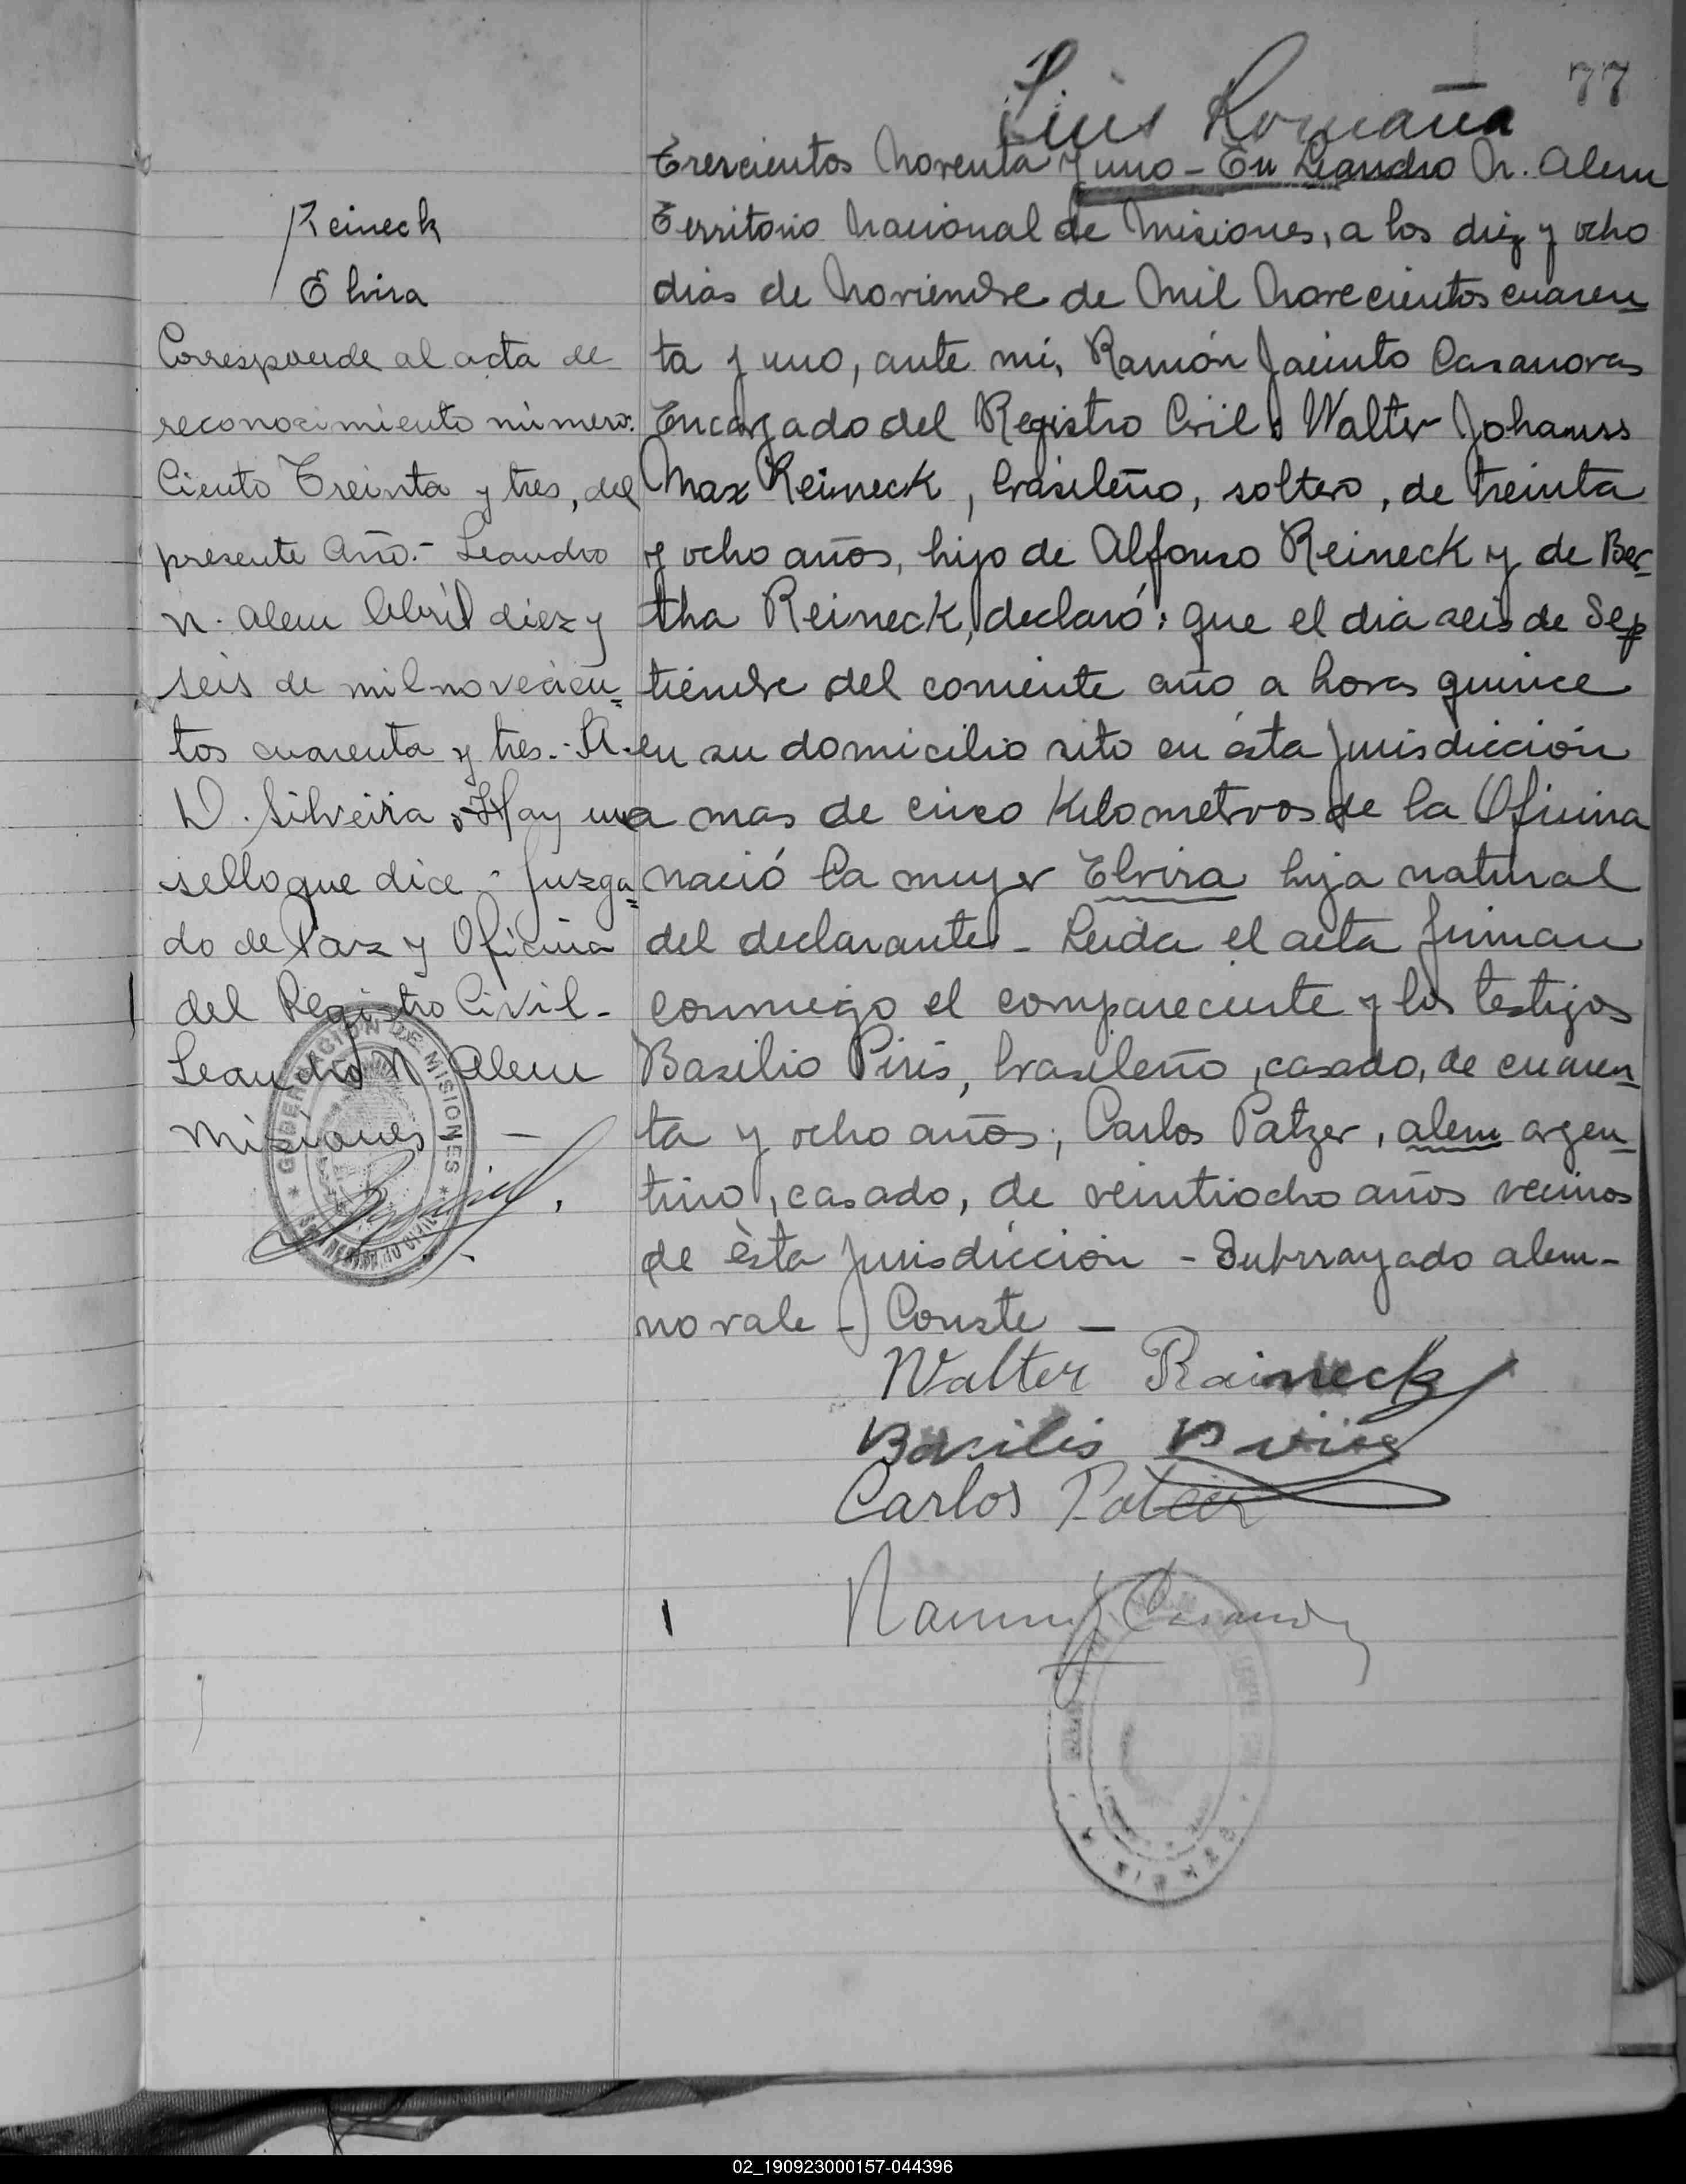 77
Luis Romaña
Trescientos Noventa y uno - En Leandro N. Alem
Territorio Nacional de Misiones, a los diez y ocho
dias de Noviembre de Mil Novecientos cuaren
ta y uno, ante mi, Ramón Jacinto Casanovas
Encargado del Registro Civil, Walter Johanss
Max Reineck, brasileño, soltero, de treinta
y ocho años, hijo de Alfonso Reineck y de Ber-
tha Reineck, declaró: que el dia seis de Sep
tiembre del corriente año a horas quince
en su domicilio sito en ésta Jurisdicción
a mas de cinco Kilometros de la Oficina
nació la mujer Elvira hija natural
del declarante - Leida el acta firman
conmigo el compareciente y los testigos
Basilio Piris, brasileño, casado, de cuaren
ta y ocho años; Carlos Patzer, alem argen
tino, casado, de veintiocho años vecinos
de ésta Jurisdicción - Subrrayado alem-
no vale - Conste -
Walter Raineck
Basilio
Carlos
Ramón J Casanovas
Reineck
Elvira
Corresponde al acta de
reconocimiento número.
Ciento Treinta y tres, del
presente Año.- Leandro
N. Alem Abril diez y
seis de mil novecien=
tos cuarenta y tres.- A.
D. Silveira. Hay un
sello que dice - Juzga=
do de Paz y Oficina
del Registro Civil -
Leandro N Alem
Misiones -
GOBERNACION DE MISIONES
02_190923000157-044396